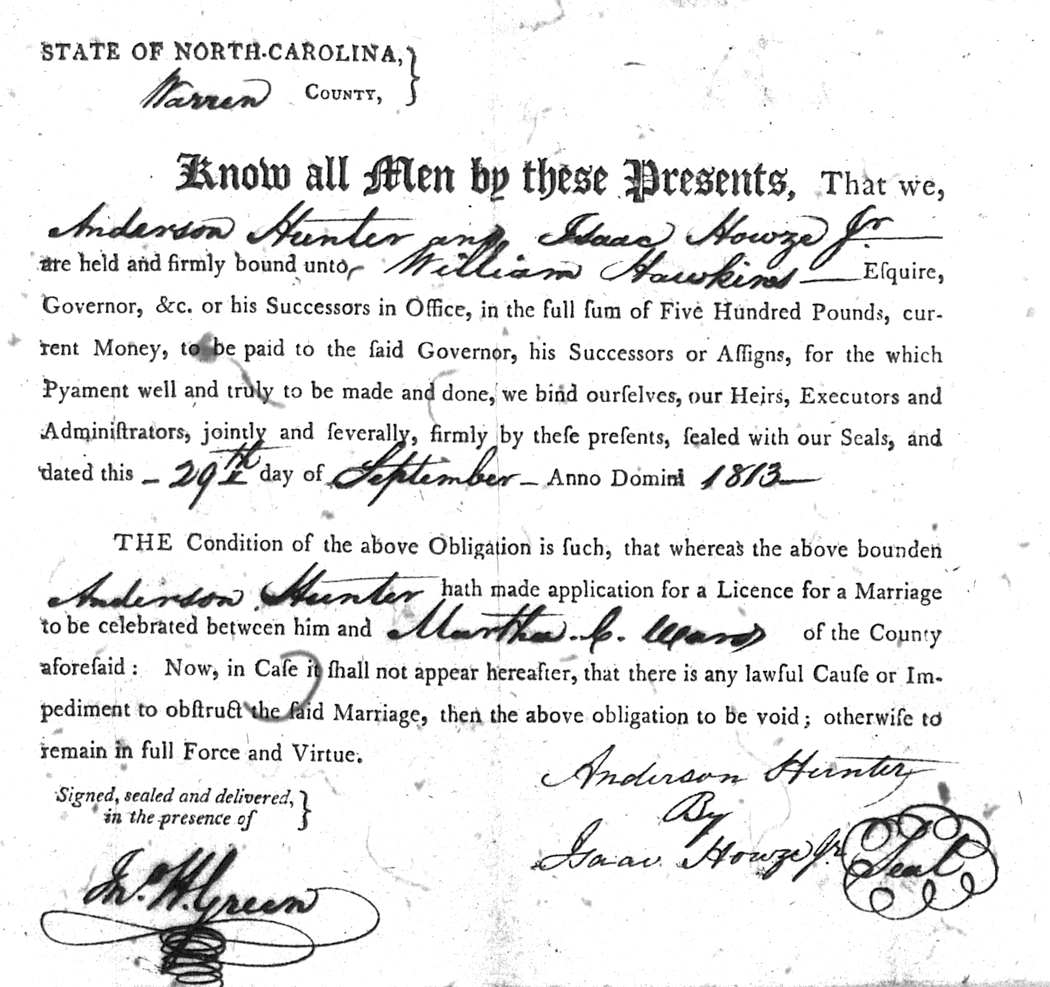 STATE OF NORTH-CAROLINA, }
Warren COUNTY,
Know all Men by these Presents, That we,
Anderson Hunter and Isaac Howze Jr
are held and firmly bound unto William Hawkins — Eſquire,
Governor, &c. or his Successors in Office, in the full ſum of Five Hundred Pounds, cur-
rent Money, to be paid to the ſaid Governor, his Successors or Aſſigns, for the which
Pyament well and truly to be made and done, we bind ourſelves, our Heirs, Executors and
Adminiſtrators, jointly and ſeverally, firmly by theſe preſents, ſealed with our Seals, and
dated this – 29th day of September – Anno Domini 1813 —
THE Condition of the above Obligation is ſuch, that whereas the above bounden
Anderson Hunter hath made application for a Licence for a Marriage
to be celebrated between him and Martha C. Ward of the County
aforeſaid: Now, in Caſe it ſhall not appear hereafter, that there is any lawful Cauſe or Im-
pediment to obſtruct the ſaid Marriage, then the above obligation to be void; otherwiſe to
remain in full Force and Virtue.
Signed, sealed and delivered, }
in the presence of
Anderson Hunter
By
Isaac Howze Jr. Seal
Jno. H. Green